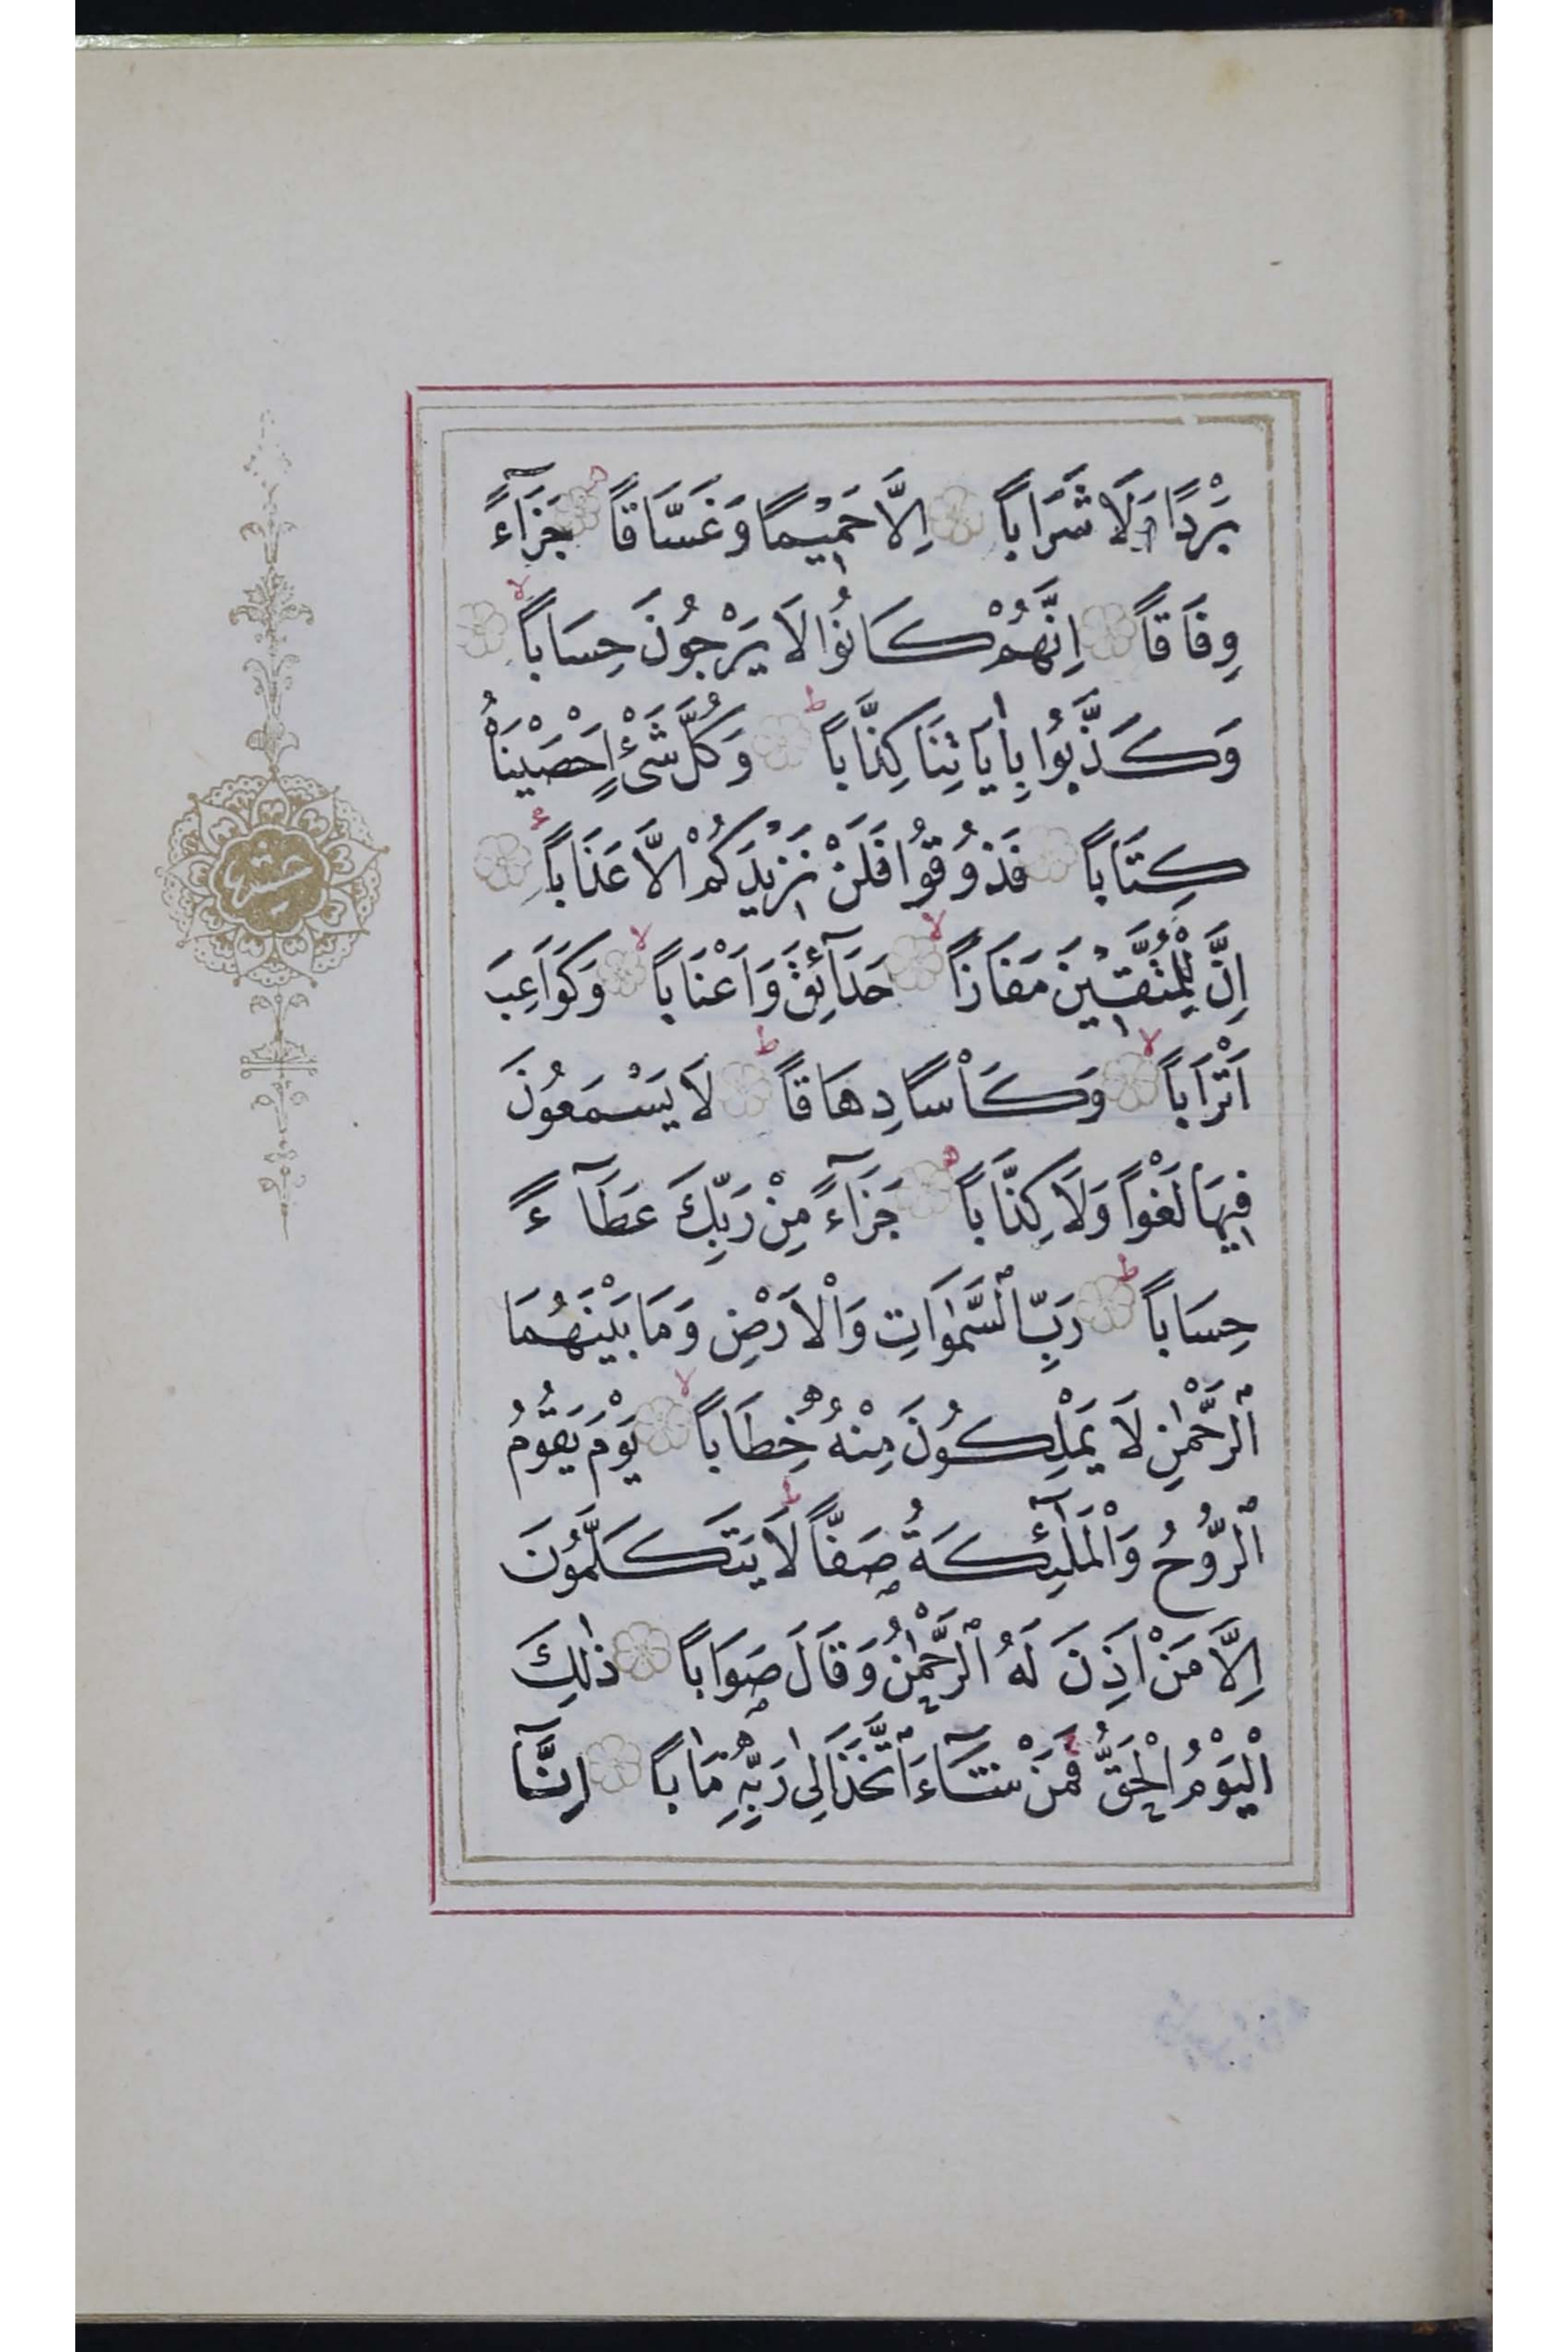 بَرْدًا وَلَا شَرَاباً اِلَّا حَمِيْمًا وَغَسَّاقاً جَزَآءً
وِفَاقاً اِنَّهُمْ كَانُوْا لَا يَرْجُونَ حِسَاباً
وَكَذَّبُوا بِاٰيَاتِنَا كِذَّاباً وَكُلَّ شَىْءٍ اَحْصَيْنَاهُ
كِتَاباً فَذُوقُوْا فَلَنْ نَزِيْدَكُمْ اِلَّا عَذَاباً
اِنَّ لِلْمُتَّقِيْنَ مَفَازاً حَدَآئِقَ وَاَعْنَاباً وَكَوَاعِبَ
اَتْرَاباً وَكَاْسًا دِهَاقاً لَا يَسْمَعُونَ
فِيهَا لَغْواً وَلَا كِذَّاباً جَزَآءً مِنْ رَبِّكَ عَطَآءً
حِسَاباً رَبِّ السَّمٰوَاتِ وَالْاَرْضِ وَمَا بَيْنَهُمَا
الرَّحْمٰنِ لَا يَمْلِكُونَ مِنْهُ خِطَاباً يَوْمَ يَقُوْمُ
الرُّوْحُ وَالْمَلٰٓئِكَةُ صَفّاً لَا يَتَكَلَّمُوْنَ
اِلَّا مَنْ اَذِنَ لَهُ الرَّحْمٰنُ وَقَالَ صَوَاباً ذٰلِكَ
الْيَوْمُ الْحَقُّ فَمَنْ شَآءَ اتَّخَذَ اِلٰى رَبِّهِ مَاٰباً اِنَّآ